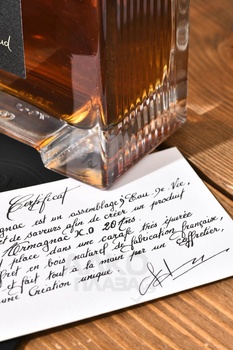 Certificat
gnac est un assemblage d'Eau de Vie,
et de saveurs afin de créer un produit
Armagnac X.O 20 Ans
place dans une carafe très épurée
fret en bois naturel de fabrication française,
et fait tout à la main par un Coffretier,
une Création unique